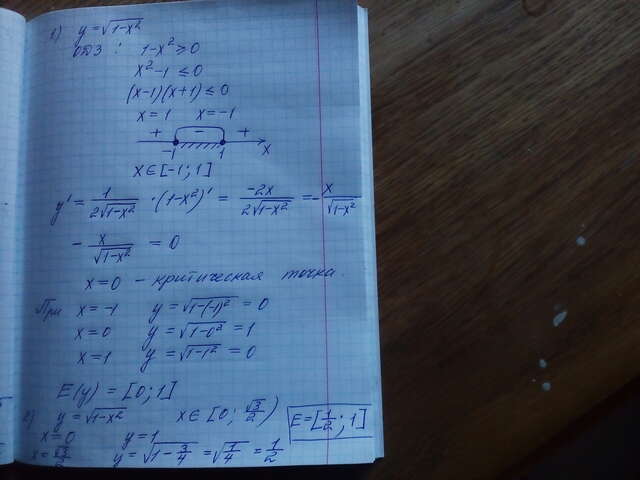 1) y = √(1-x²)
ОДЗ : 1-x² ≥ 0
x² - 1 ≤ 0
(x-1)(x+1) ≤ 0
x = 1 x = -1
+ - +
-1 1 x
x ∈ [-1; 1]
y' = 1/(2√(1-x²)) · (1-x²)' = -2x/(2√(1-x²)) = - x/√(1-x²)
- x/√(1-x²) = 0
x = 0 - критическая точка.
При x = -1 y = √(1-(-1)²) = 0
x = 0 y = √(1-0²) = 1
x = 1 y = √(1-1²) = 0
E(y) = [0; 1]
2) y = √(1-x²) x ∈ [0; √3/2) E = [1/2; 1]
x = 0 y = 1
x = √3/2 y = √(1-3/4) = √(1/4) = 1/2